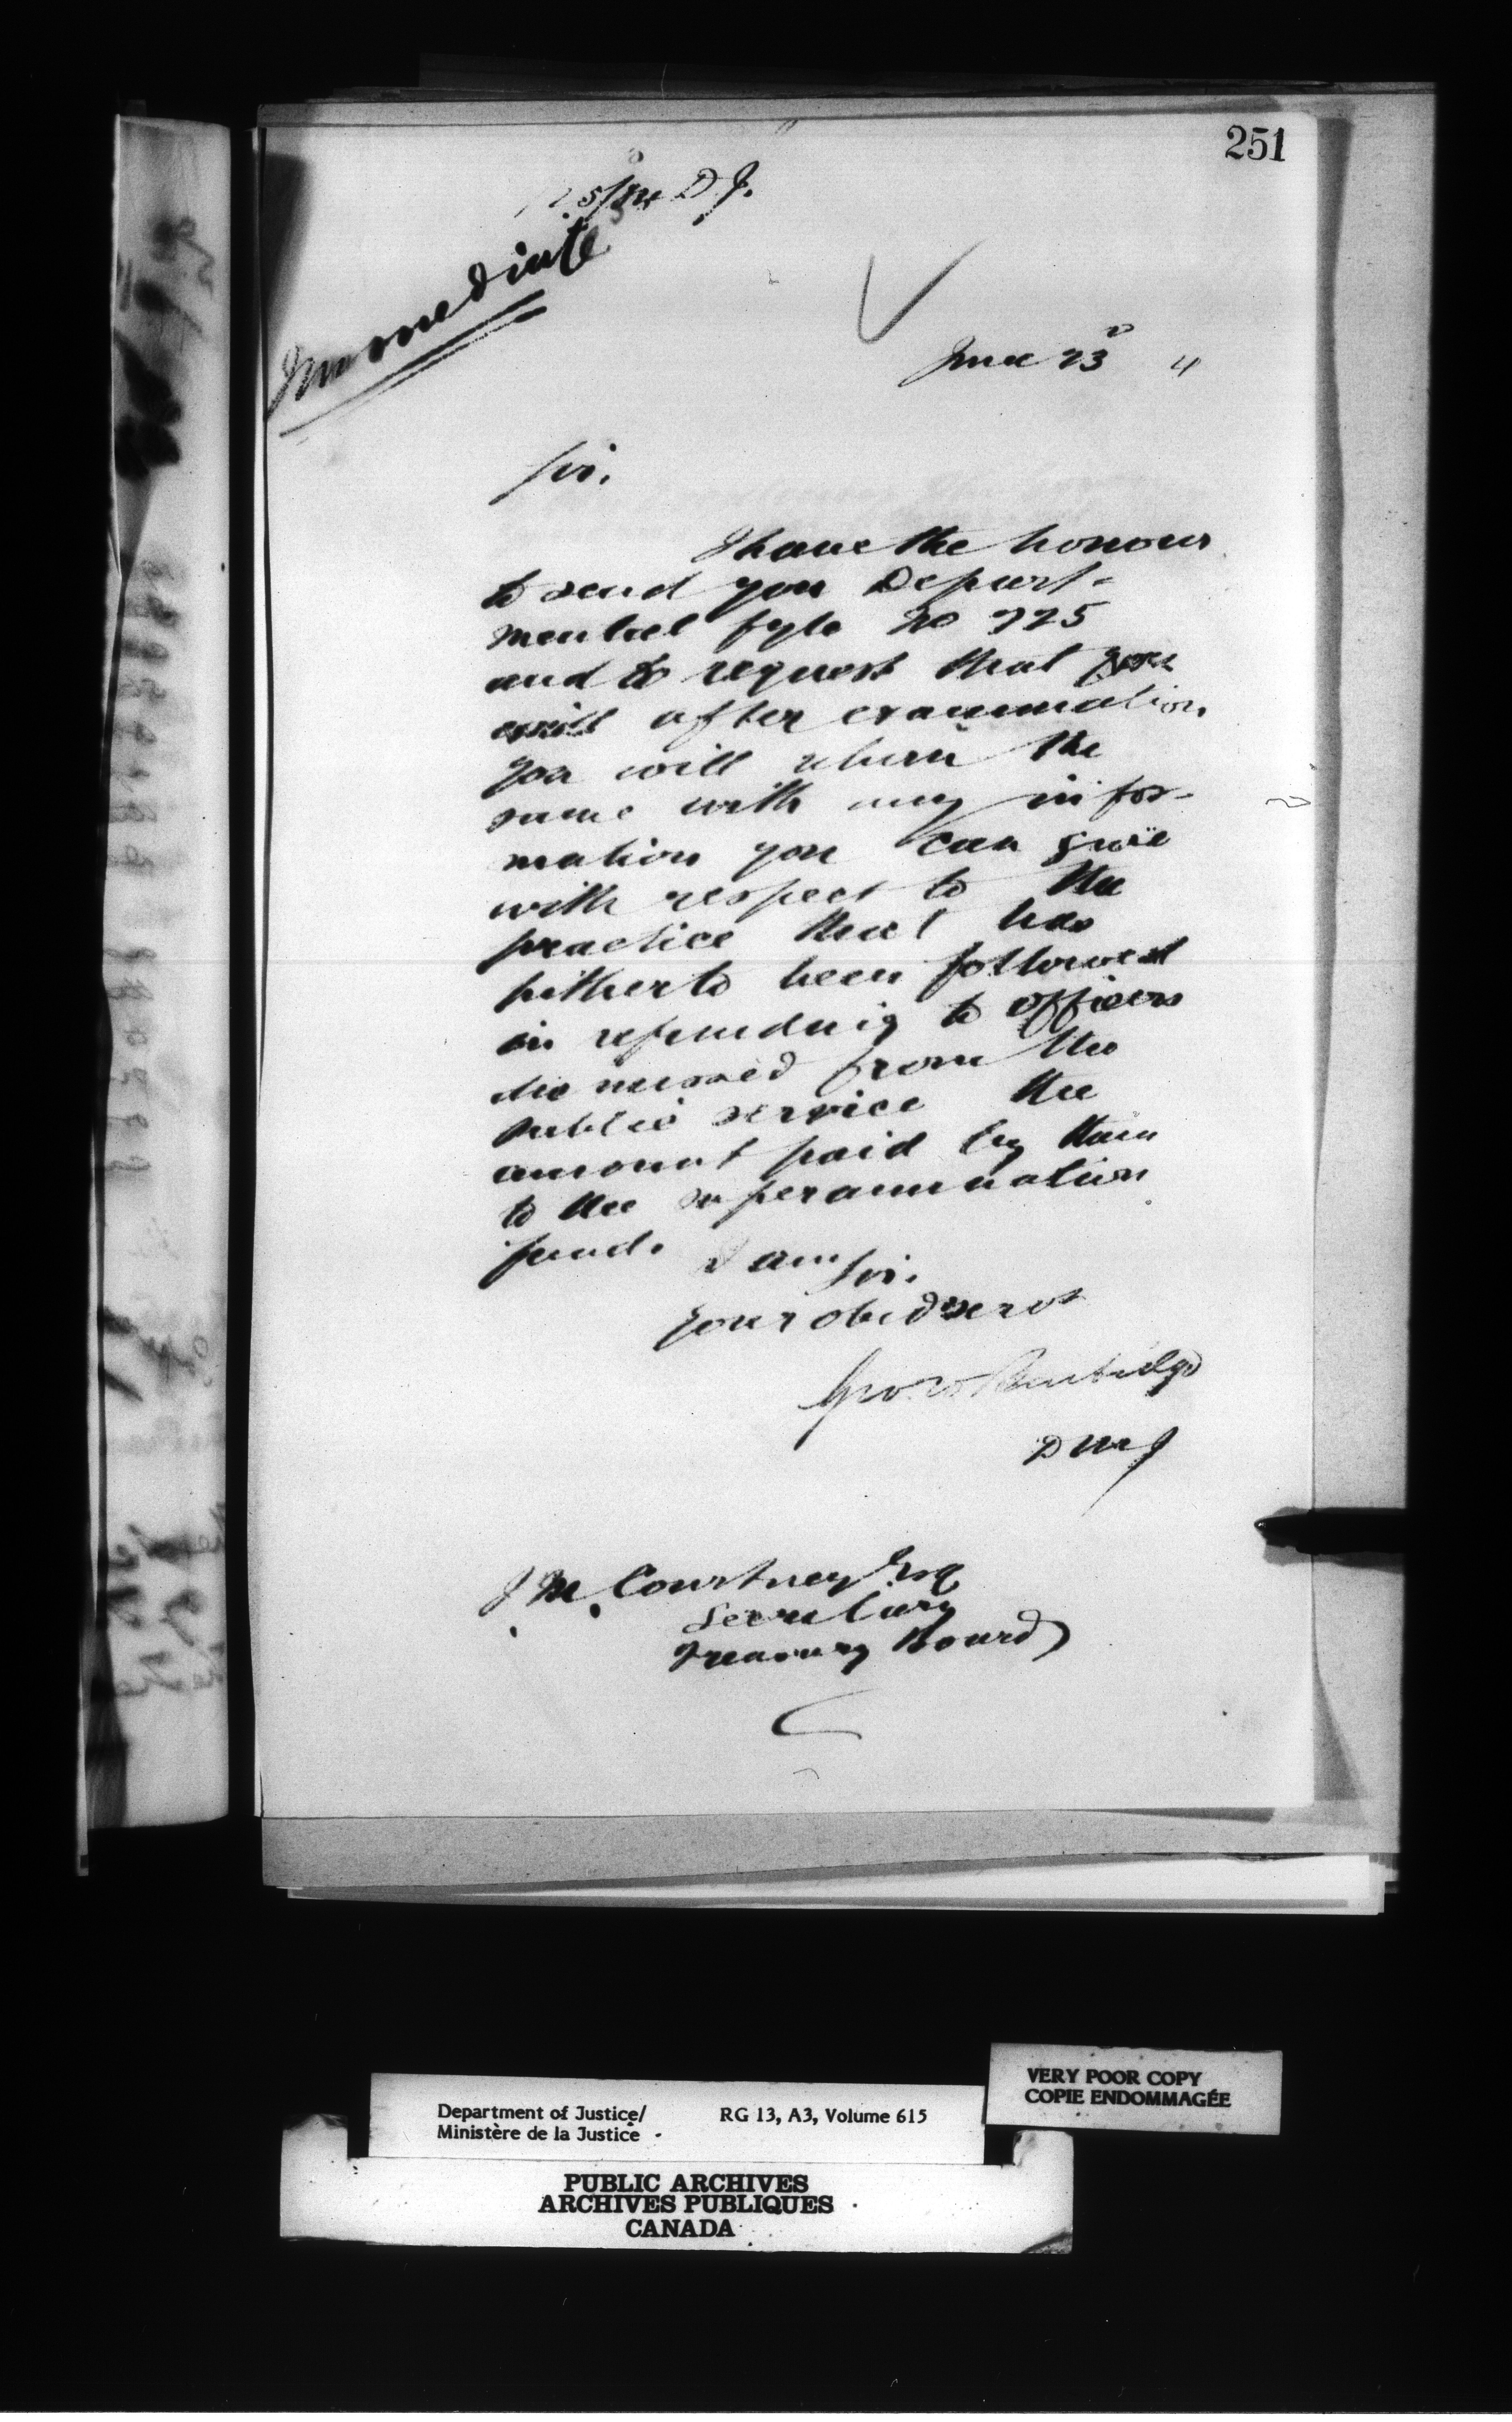 251
D. J.
Immediate
June 23d 4
Sir.
I have the honour
to send you Depart-
mental fyle No 725
and to request that you
will after examination
you will return the
same with any infor-
mation you can give
with respect to the
practice that has
hitherto been followed
in refunding to officers
dismissed from the
public service the
amount paid by them
to the superannuation
fund.
I am Sir.
Your obed servt
Geo. W. Burbidge
D M J
J. M. Courtney Esq
Secretary
Treasury Board
VERY POOR COPY
COPIE ENDOMMAGÉE
Department of Justice/ RG 13, A3, Volume 615
Ministère de la Justice
PUBLIC ARCHIVES
ARCHIVES PUBLIQUES
CANADA